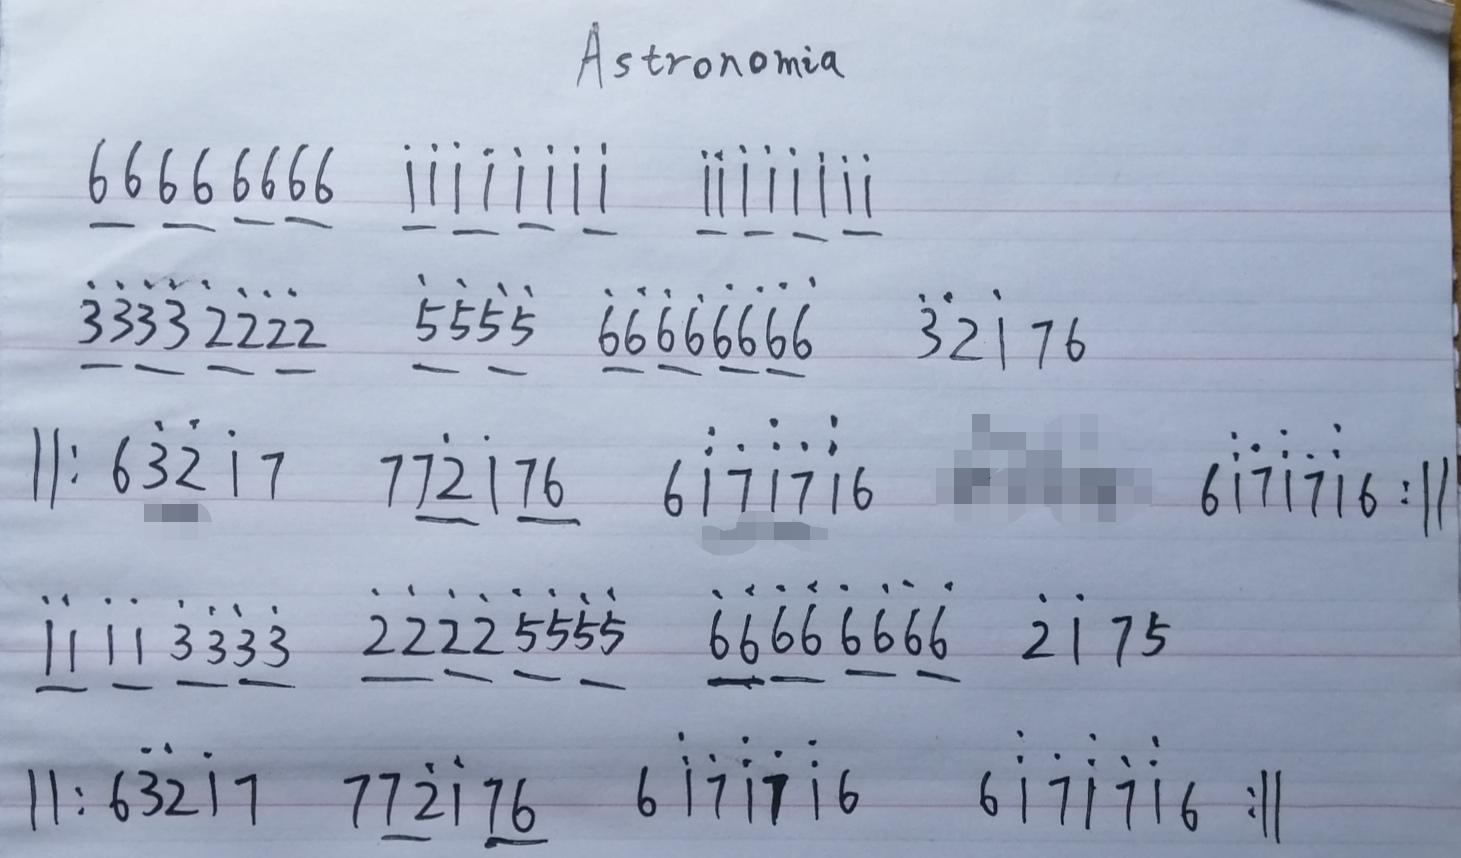 Astronomia
66666666 i̇i̇i̇i̇i̇i̇i̇i̇ i̇i̇i̇i̇i̇i̇i̇i̇
3̇3̇3̇3̇2̇2̇2̇2̇ 5̇5̇5̇5̇ 6̇6̇6̇6̇6̇6̇6̇6̇ 3̇2̇1̇76
||: 63̇2̇1̇7 772̇1̇76 61̇71̇71̇6 61̇71̇71̇6 :||
1̇1̇1̇1̇3̇3̇3̇3̇ 2̇2̇2̇2̇5̇5̇5̇5̇ 6̇6̇6̇6̇6̇6̇6̇6̇ 2̇1̇75
||: 63̇2̇1̇7 772̇1̇76 61̇71̇71̇6 61̇71̇71̇6 :||